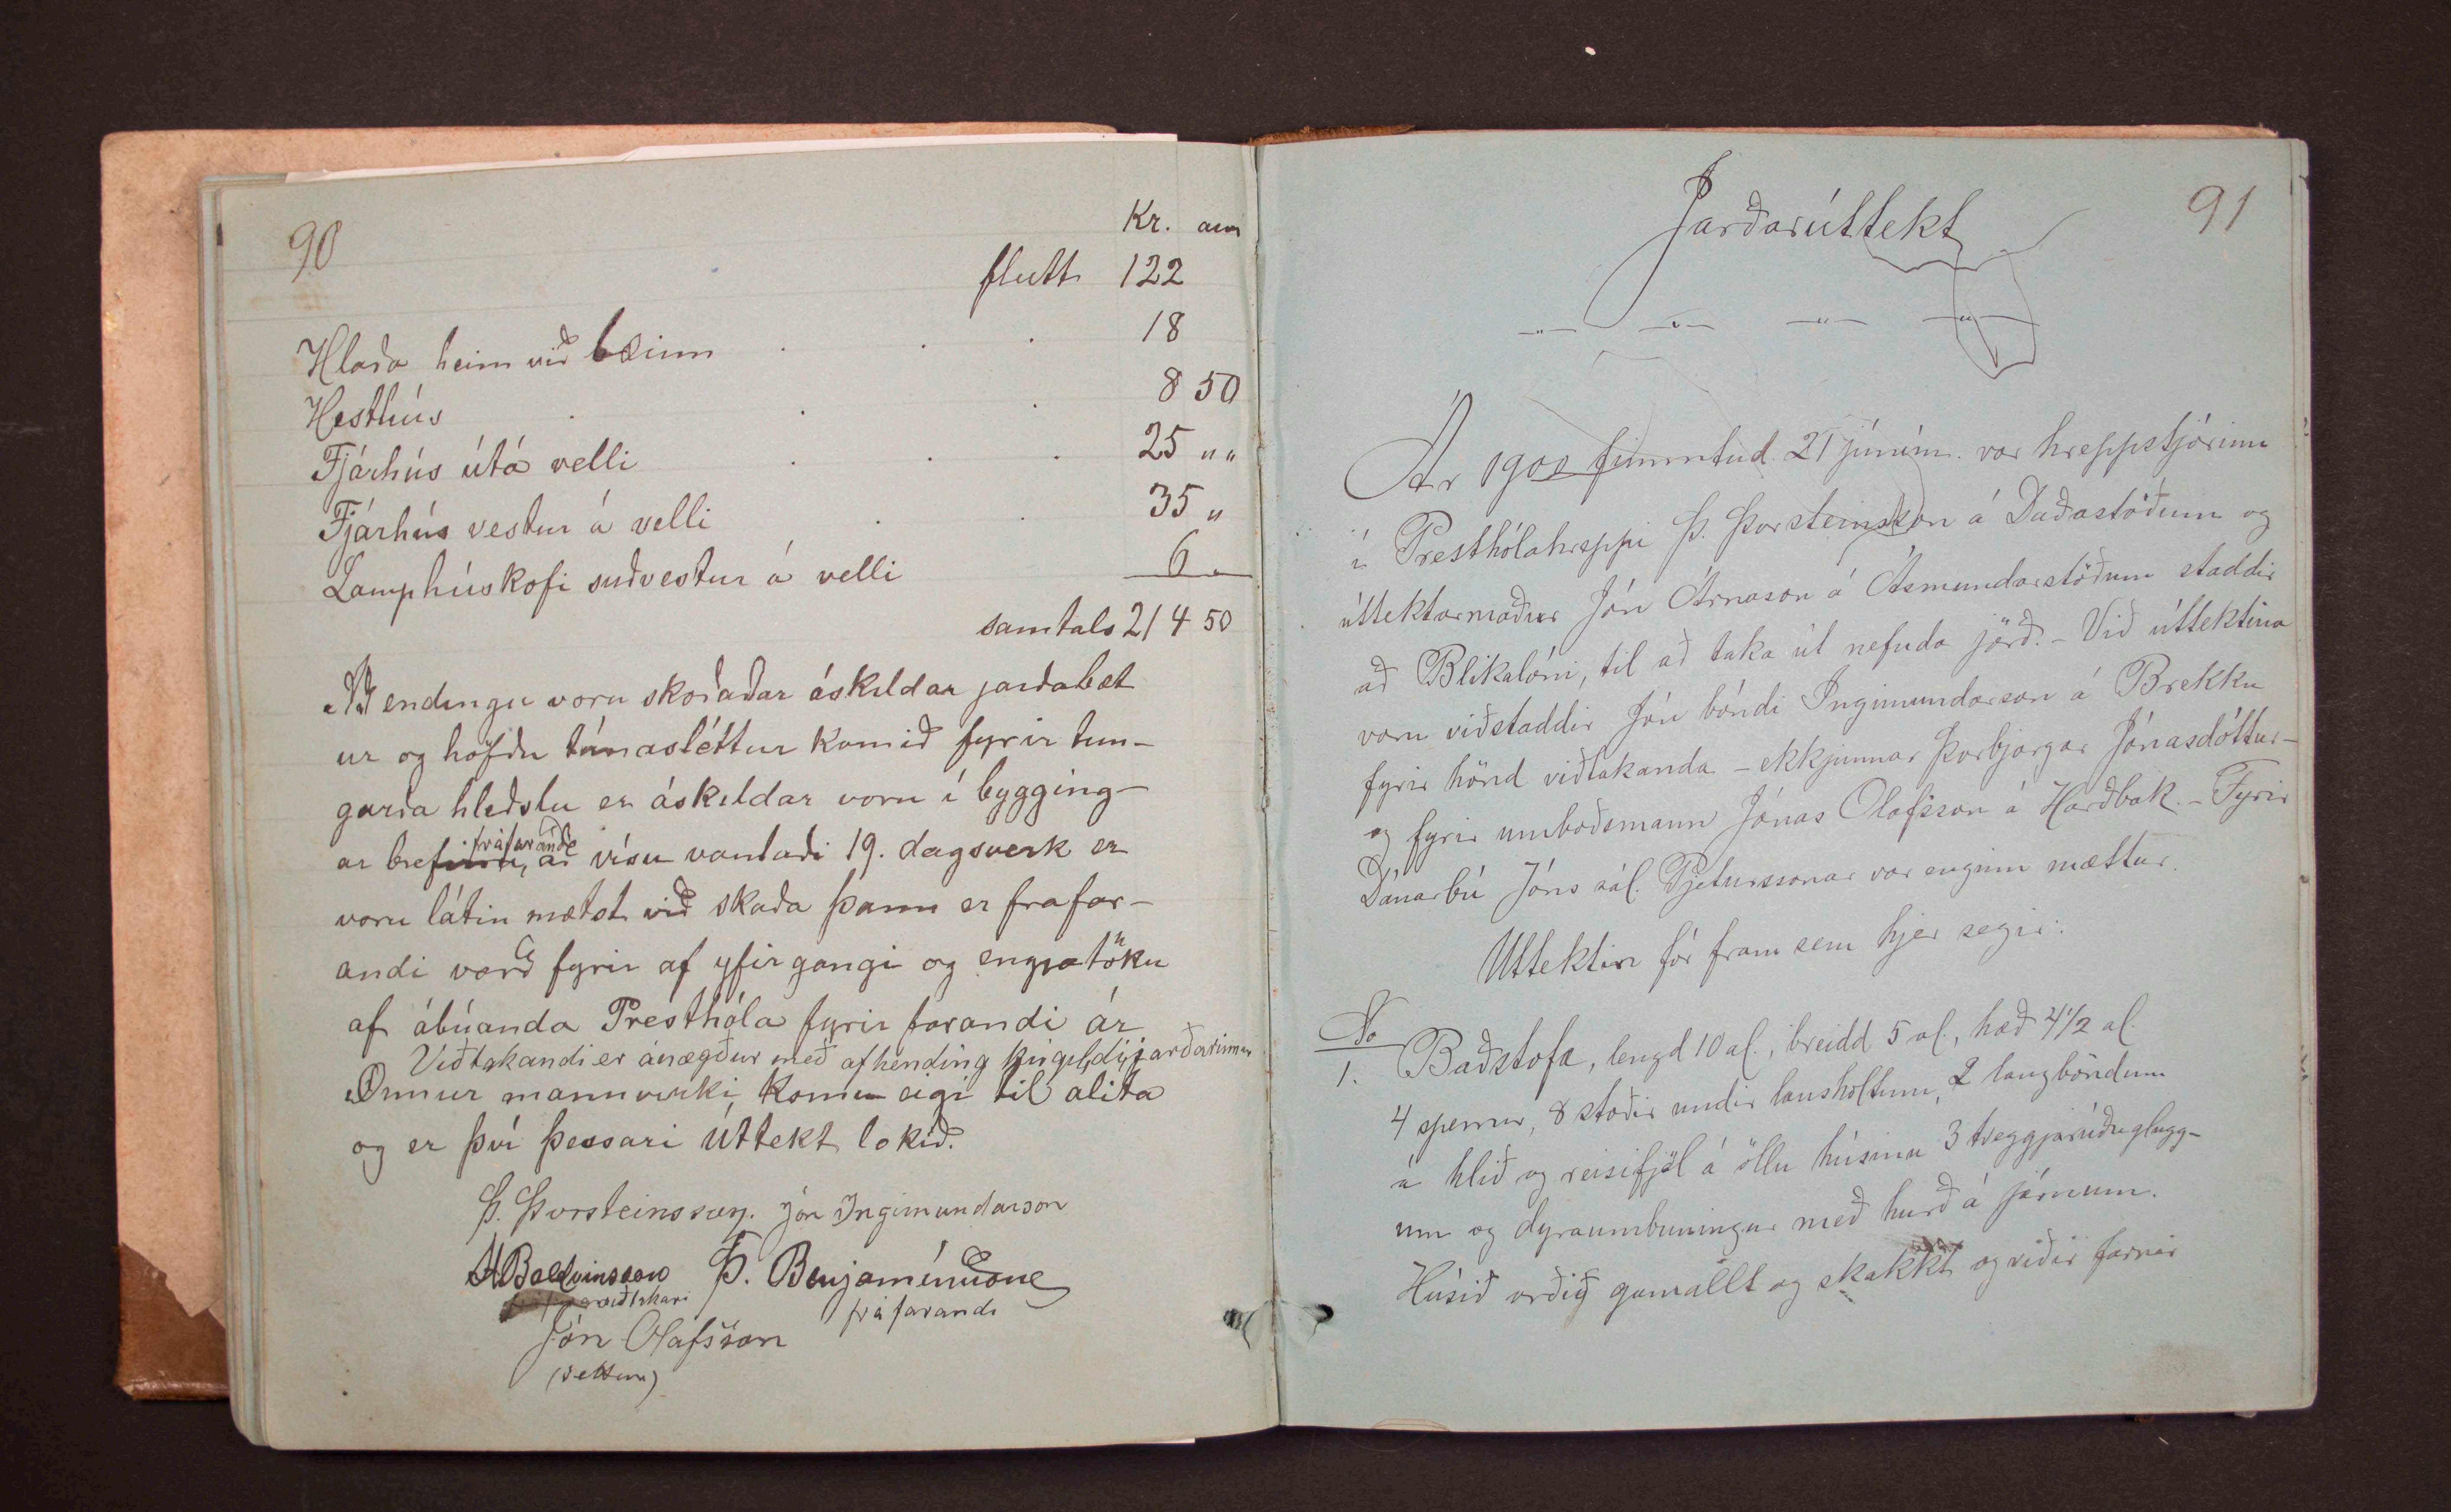 90
Kr. aur
flutt 122
Hlaða heim við bæinn . . . 18
Hesthús . . . 8 50
Fjárhús útá velli . . . 25 „ „
Fjárhús vestur á velli . . 35 „
Lamphúskofi suðvestur á velli 6 „
samtals 214 50
Að endingu voru skoðaðar áskildar jarðabæt
ur og höfðu túnasléttur komið fyrir tun-
garða hleðslu er áskildar voru í bygging-
ar bref
fráfarandi
, að vísu vantaði 19. dagsverk er
voru látin mætst við skaða þann er frafar-
andi varð fyrir af yfirgangi og engjatöku
af ábúanda Presthóla fyrir farandi ár
Viðtakandi er ánægður með afhending kúgildi jarðarinnar
Önnur mannvirki, komu eigi til alita
og er því þessari úttekt lokið.
Þ. Þorsteinsson. Jón Ingimundarson
Baldvinsson Þ. Benjamínsson
viðtakari fráfarandi
Jón Olafsson
(settur)
91
Jarðarúttekt
Ár 1900 fimmtud. 21 júním. var hreppstjórinn
í Presthólahreppi Þ. Þorsteinsson á Daðastöðum og
úttektarmaður Jón Árnason á Ásmundarstöðum staddir
að Blikalóni, til að taka út nefnda jörð. - Við úttektina
voru viðstaddir Jón bóndi Ingimundarson á Brekku
fyrir hönd viðtakanda - ekkjunnar Þorbjargar Jónasdóttur -
og fyrir umboðsmann Jónas Olafsson á Harðbak. - Fyrir
Dánarbú Jóns sál. Pjeturssonar var enginn mættur.
Uttektin fór fram sem hjer segir:
No
1. Baðstofa, lengd 10 al., breidd 5 al., hæð 4 1/2 al.
4 sperrur, 8 stoðir undir lausholtum, 2 langböndum
á hlið og reisifjöl á öllu húsinu 3 tveggjarúðuglugg-
um og dyraumbuningur með hurð á járnum.
Húsið orðið gamallt og skakkt og viðir farnir